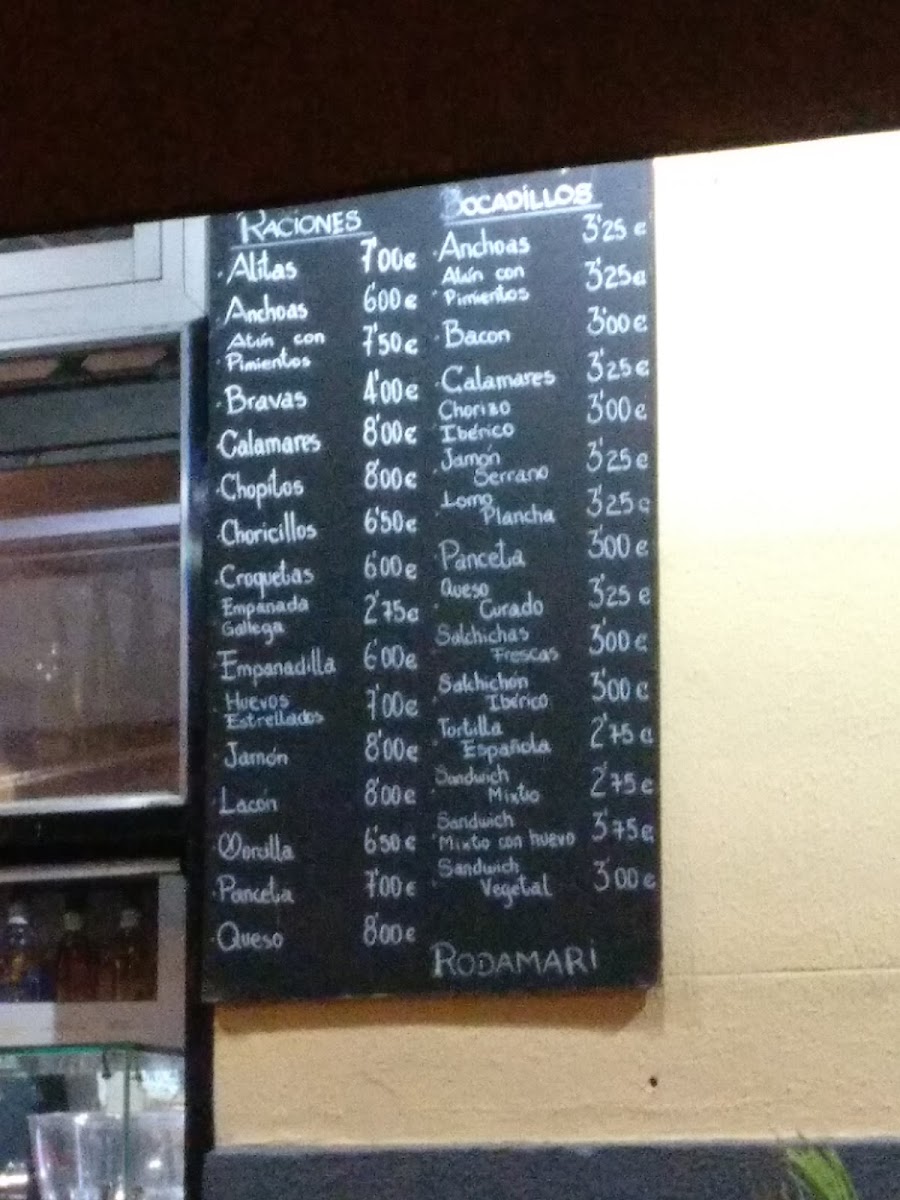 RACIONES
· Alitas 7'00€
· Anchoas 6'00€
Atún con
· Pimientos 7'50€
· Bravas 4'00€
· Calamares 8'00€
· Chopitos 8'00€
· Choricillos 6'50€
· Croquetas 6'00€
Empanada
Gallega 2'75€
· Empanadilla 6'00€
· Huevos
Estrellados 7'00€
· Jamón 8'00€
· Lacón 8'00€
· Morcilla 6'50€
· Panceta 7'00€
· Queso 8'00€
BOCADILLOS
· Anchoas 3'25€
Atún con
· Pimientos 3'25€
· Bacon 3'00€
· Calamares 3'25€
Chorizo
· Ibérico 3'00€
Jamón
· Serrano 3'25€
Lomo
· Plancha 3'25€
· Panceta 3'00€
Queso
· Curado 3'25€
Salchichas
· Frescas 3'00€
Salchichón
· Ibérico 3'00€
Tortilla
· Española 2'75€
Sandwich
· Mixto 2'75€
Sandwich
· Mixto con huevo 3'75€
Sandwich
· Vegetal 3'00€
RODAMARI